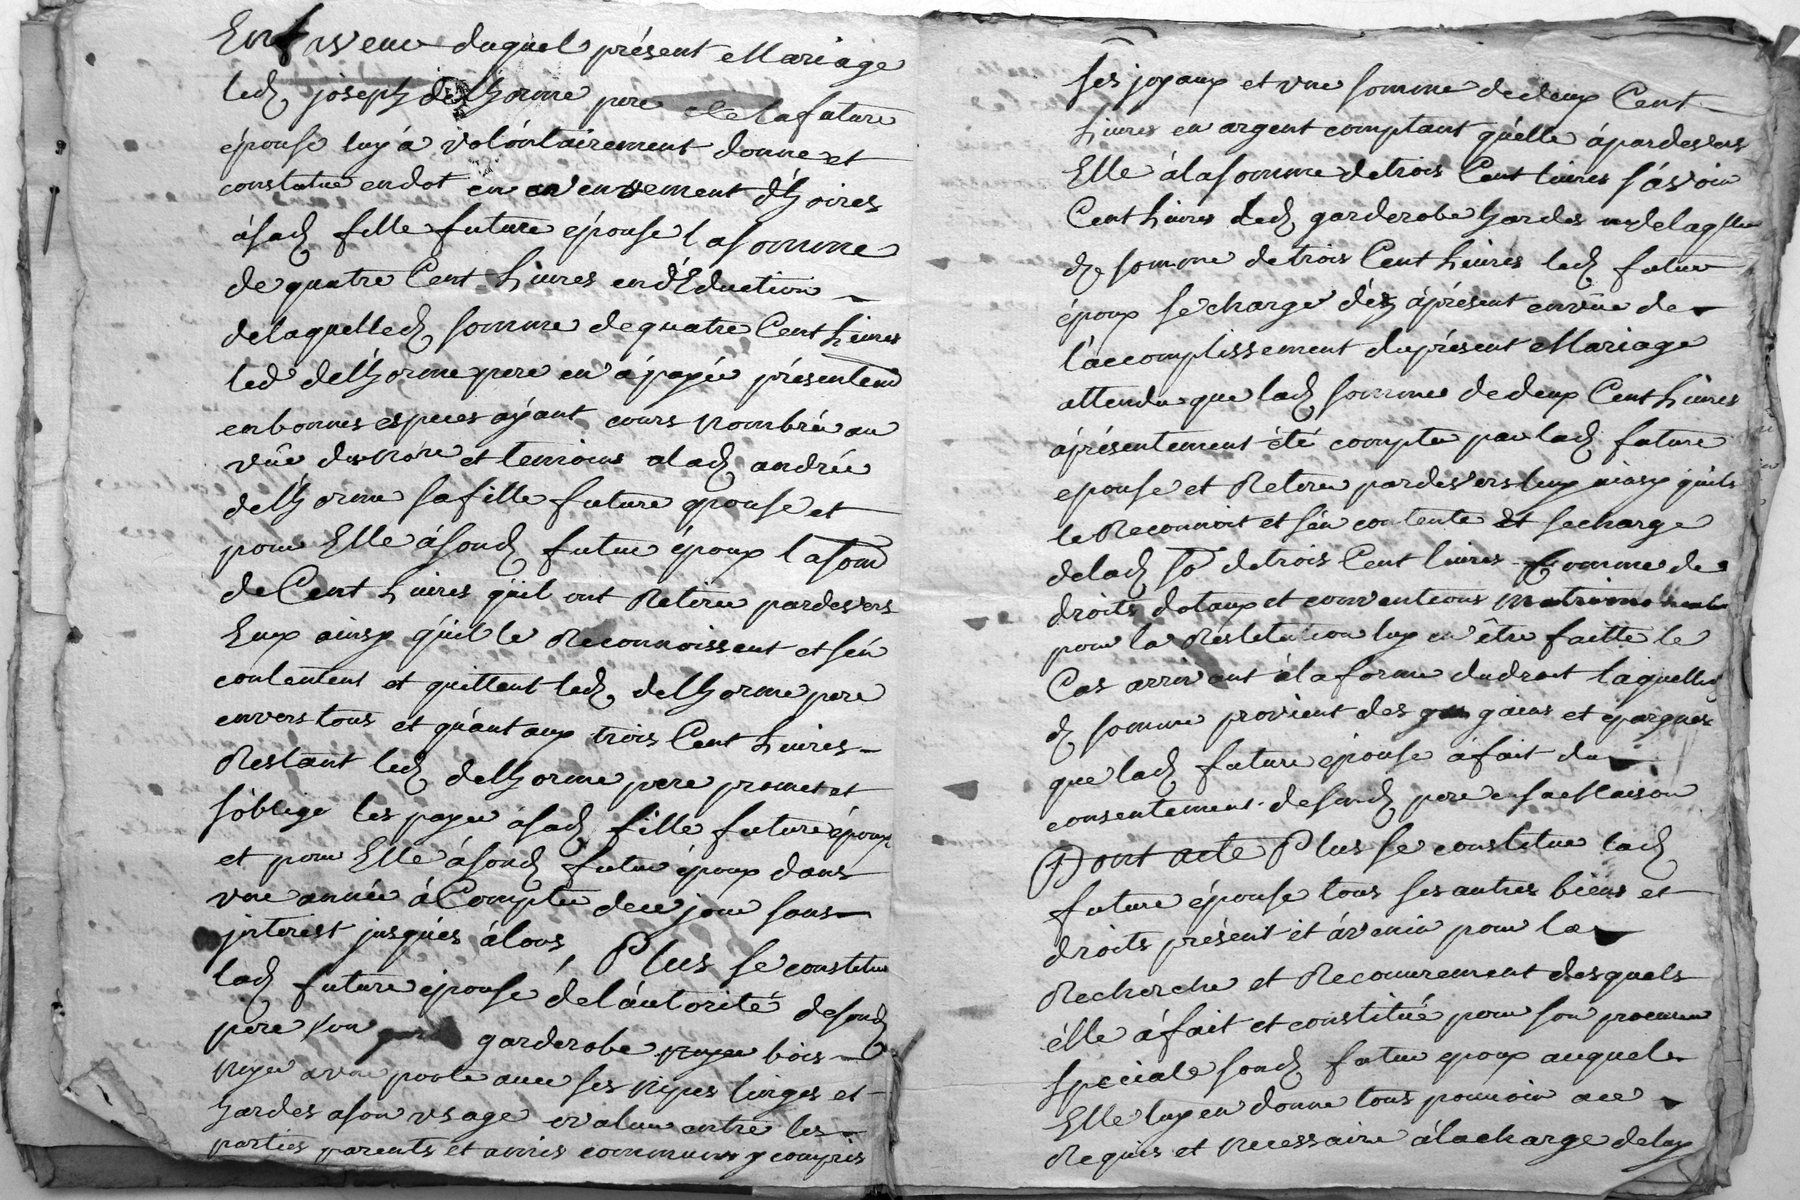 En faveur duquel présent Mariage
led joseph delhorme pere de la future
épouse luy á volóntairement donné et
constitué en dot en avencement d'hoires
á sad fille future épouse la somme
de quatre Cent Livres en déduction
de laquelled somme de quatre Cent Livres
led delhorme pere en á payée présentemt
en bonnes especes ayant cours nombrée au
vüe du nore et temoins a lad andrée
delhorme sa fille future epouse et
pour Elle á sond futur époux la som
de Cent Livres qu'il ont Retirée pardevers
Eux ainsy qu'il le Reconnoissent et s'én
contentent et quittent led delhorme pere
envers tous et quant aux trois Cent Livres
Restant led delhorme pere promet et
s'oblige les payer á sad fille future épouse
et pour Elle á sond futur époux dans
une année á Compter de ce jour sans
jnterest jusques álors, Plus se constitue
lad future épouse de l'áutorité de sond
pere son garderobe noyer bois
noyer a une porte avec ses nipes linges et
hardes a son usage evalue entre les
parties parents et amis communs y compris
ses joyaux et une somme de deux Cent
Livres en argent comptant qu'elle á pardevers
Elle á la somme de trois Cent livres sávoir
Cent Livres led garderobe hardes de laqlle
de somme de trois Cent Livres led futur
époux se charge dés áprésent en vüe de
l'accomplissement du présent Mariage
attendu que lad somme de deux Cent Livres
á présentement été comptée par lad future
epouse et Retirée pardevers luy ainsy qu'il
le Reconnoit et s'én contente Et se charge
de lad so de trois Cent livres comme de
droits dotaux et conventions matrimoniales
pour la Restitution luy en être faitte le
Cas arrivant á la forme du droit laquelle
d somme provient des gains et épargnes
que lad future épouse á fait du
consentement de sond pere en sa Maison
Dont acte Plus se constitue lad
future épouse tous ses autres biens et
droits présent et ávenir pour la
Recherche et Recouvrement desquels
élle á fait et constitué pour son procureur
speciale sond futur epoux auquel
Elle luy en donne tous pouvoir a ce
Requis et necessaire á la charge de luy